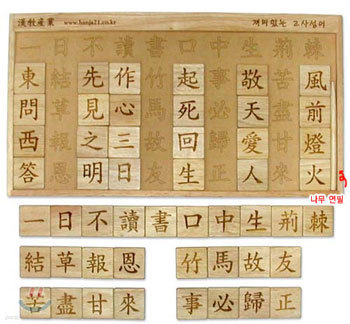 漢牧産業 www.hanja21.co.kr 재미있는 고사성어
一日不讀書口中生荊棘
東結先作竹起事敬苦風
問草見心馬死必天盡前
西報之三故回歸愛甘燈
答恩明日友生正人來火
나무 연필
一日不讀書口中生荊棘
結草報恩 竹馬故友
苦盡甘來 事必歸正